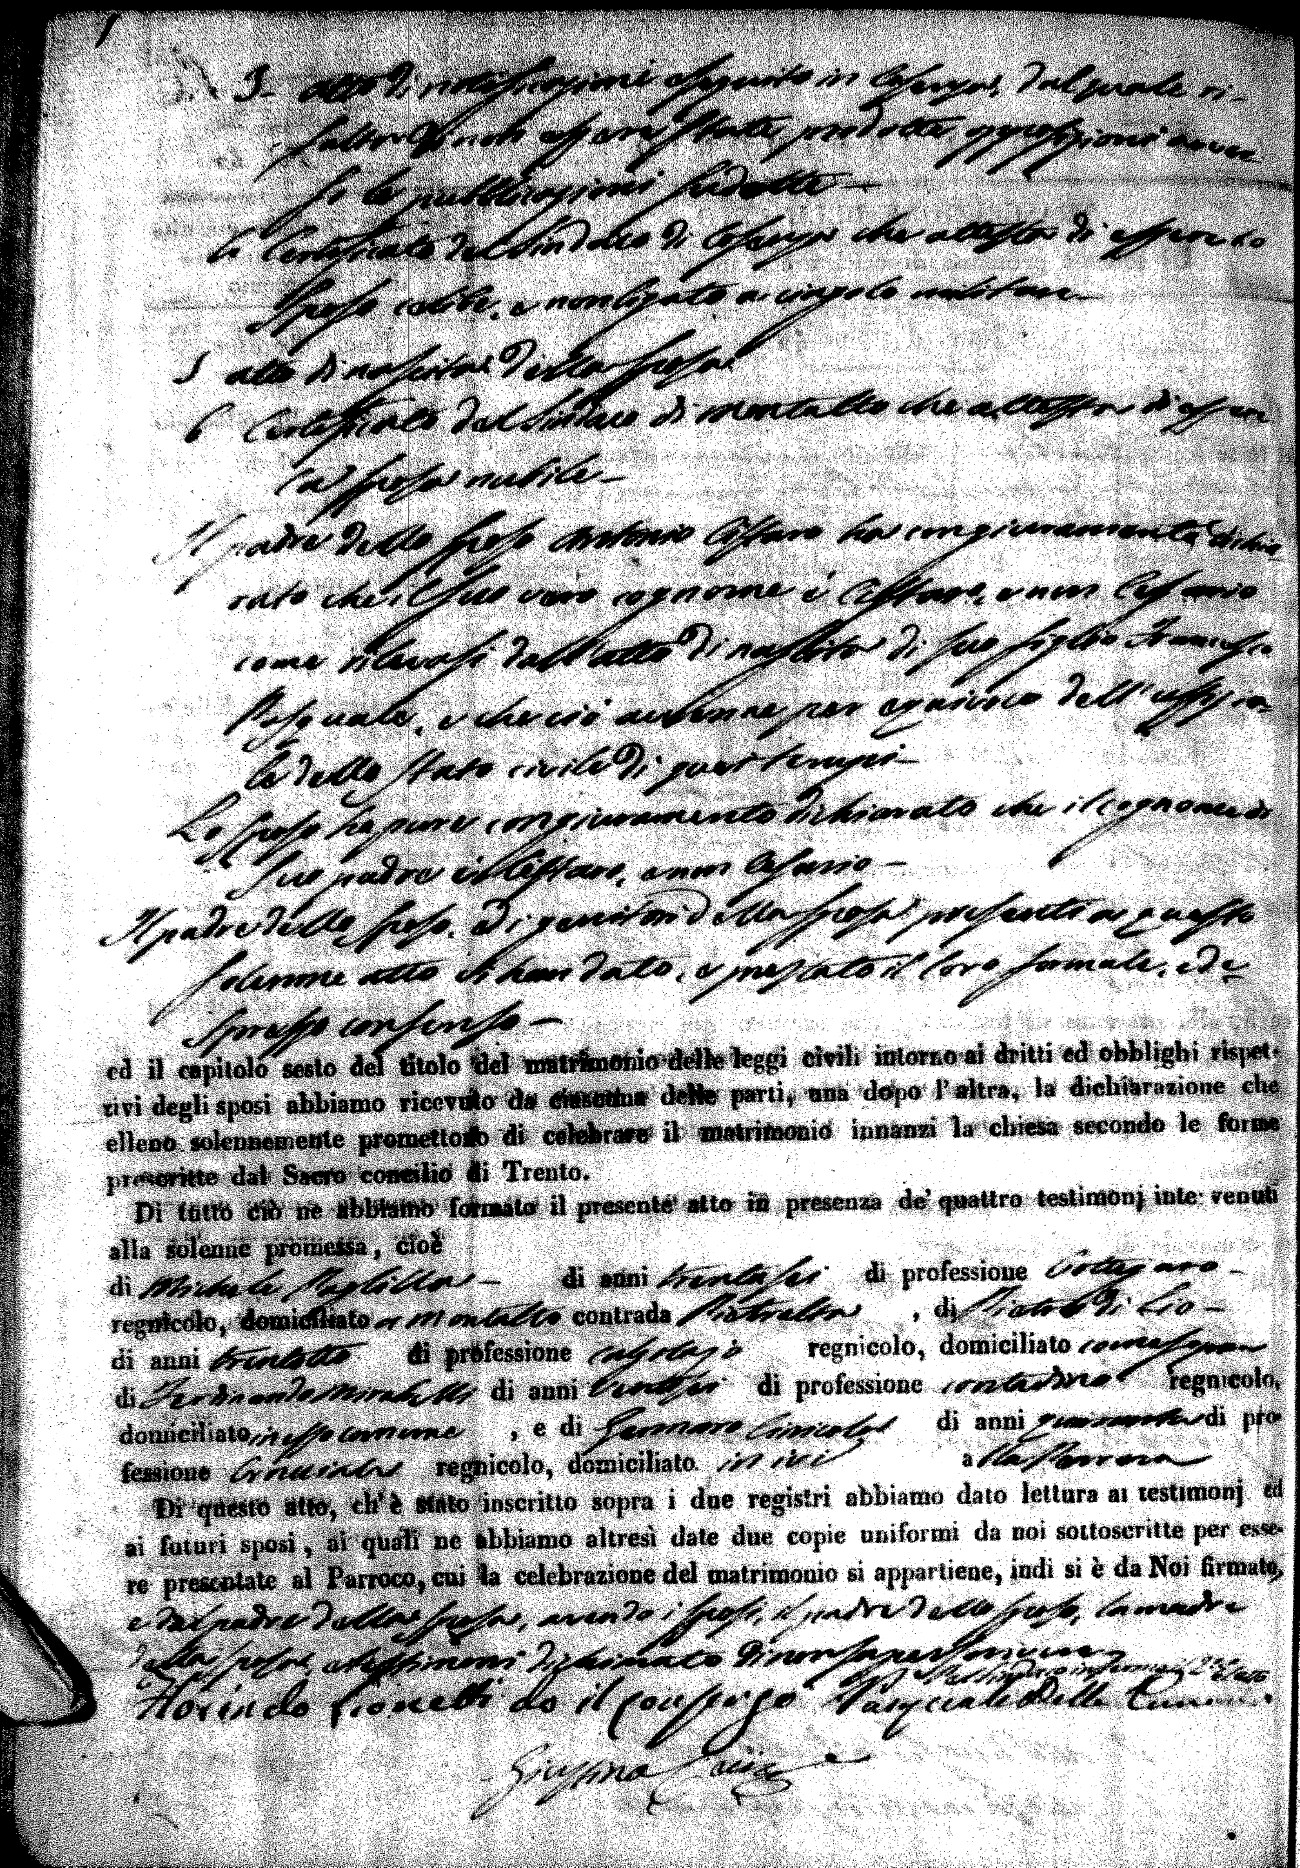 3. atto di notificazioni eseguito in Cosenza, dal quale ri-
sulta di non essere state prodotte opposizioni avver
so le pubblicazioni sudette —
4 Certificato del Sindaco di Cosenza che attesta di essere lo
Sposo celibe, e non ligato a vingolo militare —
5 atto di nascita della sposa
6 Certificato del Sindaco di Montalto che attesta di essere
la sposa nubile —
Il padre dello sposo Antonio Cistaro ha congiuramento dichia
rato che il suo vero cognome è Cistaro, e non Cesario
come rilevasi dall'atto di nascita di suo figlio Francesco
Pasquale, e che ciò avvenne per equivoco dell'uffizia-
le dello Stato civile di quei tempi —
Lo sposo ha pure congiuramento dichiarato che il cognome di
suo padre è Cistaro, e non Cesario —
Il padre dello sposo, ed i genitori della sposa presenti a questo
solenne atto ci han dato, e prestato il loro formale, ed e
spresso consenso —
ed il capitolo sesto del titolo del matrimonio delle leggi civili intorno ai dritti ed obblighi rispet-
tivi degli sposi abbiamo ricevuto da ciascuna delle parti, una dopo l'altra, la dichiarazione che
elleno solennemente promettono di celebrare il matrimonio innanzi la chiesa secondo le forme
prescritte dal Sacro concilio di Trento.
Di tutto ciò ne abbiamo formato il presente atto in presenza de' quattro testimonj inte venuti
alla solenne promessa, cioè
di Michele Pagliilla — di anni trentasei di professione bottegaro —
regnicolo, domiciliato a Montalto contrada , di Pietro di Lio —
di anni trentotto di professione calzolajo regnicolo, domiciliato come sopra
di Ferdinando Mirabelli di anni ventisei di professione contadino regnicolo,
domiciliato in esso comune , e di Gennaro di anni quaranta di pro-
fessione bracciale regnicolo, domiciliato in ivi a lla
Di questo atto, ch'è stato inscritto sopra i due registri abbiamo dato lettura ai testimonj ed
ai futuri sposi, ai quali ne abbiamo altresì date due copie uniformi da noi sottoscritte per esse-
re presentate al Parroco, cui la celebrazione del matrimonio si appartiene, indi si è da Noi firmato,
e dal padre della sposa, avendo i sposi, il padre dello sposo, la madre
della sposa, e testimoni dichiarato di non saper scrivere
Florindo Lionetti do il consenzo Pasquale Della